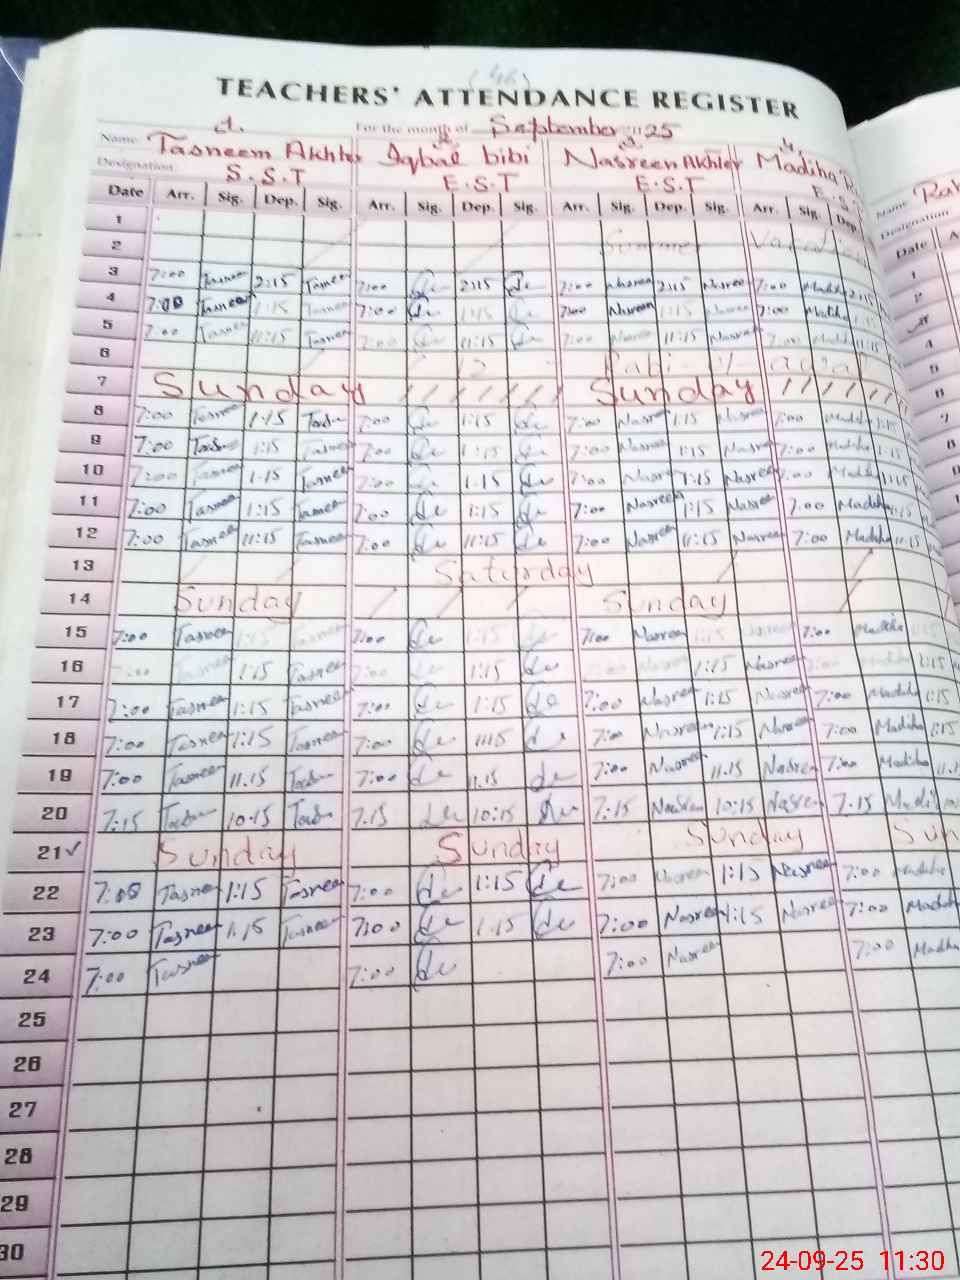 (46)
TEACHERS' ATTENDANCE REGISTER
For the month of September 25
Name: Tasneem Akhter Iqbal bibi Nasreen Akhter Madiha
Designation: S.S.T E.S.T E.S.T E.S.T
Date Arr. Sig. Dep. Sig. Arr. Sig. Dep. Sig. Arr. Sig. Dep. Sig. Arr. Sig. Dep
1
2 Summer
3 7:00 Tasneem 2:15 Tasneem 7:00 2:15 7:00 Nasreen 2:15 Nasreen 7:00 Madiha 2:15
4 7:00 Tasneem 1:15 Tasneem 7:00 1:15 7:00 Nasreen 1:15 Nasreen 7:00 Madiha 1:15
5 7:00 Tasneem 11:15 Tasneem 7:00 11:15 7:00 Nasreen 11:15 Nasreen 7:00 Madiha 11:15
6 12 Rabi-ul-Awal
7 Sunday Sunday
8 7:00 Tasneem 1:15 7:00 1:15 7:00 Nasreen 1:15 Nasreen 7:00 Madiha 1:15
9 7:00 1:15 Tasneem 7:00 1:15 7:00 Nasreen 1:15 Nasreen 7:00 Madiha 1:15
10 7:00 Tasneem 1:15 Tasneem 7:00 1.15 7:00 Nasreen 1:15 Nasreen 7:00 Madiha 1:15
11 7:00 Tasneem 1:15 Tasneem 7:00 1:15 7:00 Nasreen 1:15 Nasreen 7:00 Madiha 1:15
12 7:00 Tasneem 11:15 Tasneem 7:00 11:15 7:00 Nasreen 11:15 Nasreen 7:00 Madiha 11:15
13 Saturday
14 Sunday Sunday
15 7:00 Tasneem 1:15 Tasneem 7:00 1:15 7:00 Nasreen 1:15 Nasreen 7:00 Madiha 1:15
16 7:00 Tasneem 1:15 Tasneem 7:00 1:15 7:00 Nasreen 1:15 Nasreen 7:00 Madiha 1:15
17 7:00 Tasneem 1:15 Tasneem 7:00 1:15 7:00 Nasreen 1:15 Nasreen 7:00 Madiha 1:15
18 7:00 Tasneem 1:15 Tasneem 7:00 7:00 Nasreen 1:15 Nasreen 7:00 Madiha 1:15
19 7:00 Tasneem 11.15 7:00 11.15 7:00 Nasreen 11.15 Nasreen 7:00 Madiha 11.15
20 7:15 10:15 7.15 10:15 7:15 Nasreen 10:15 Nasreen 7.15 Madiha
21✓ Sunday Sunday Sunday Sun
22 7:00 Tasneem 1:15 Tasneem 7:00 1:15 7:00 Nasreen 1:15 Nasreen 7:00 Madiha
23 7:00 Tasneem 1.15 Tasneem 7:00 1.15 7:00 Nasreen 1:15 Nasreen 7:00 Madiha
24 7:00 Tasneem 7:00 7:00 Nasreen 7:00 Madiha
25
26
27
28
29
30
Name
Designation
Date
1
2
4
5
6
7
24-09-25 11:30